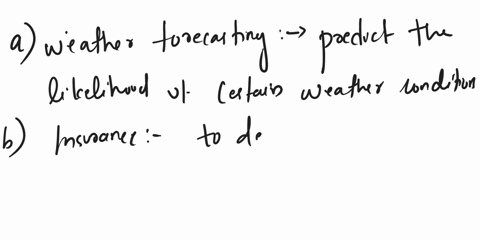 a) weather forecasting :→ preduct the
likelihood of certain weather condition
b) Insurance :- to de